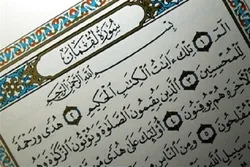 سُورَةُ لُقْمَانَ
بِسْمِ اللَّهِ الرَّحْمَٰنِ الرَّحِيمِ
الٓمٓ ١ تِلْكَ ءَايَٰتُ الْكِتَٰبِ الْحَكِيمِ ٢ هُدًى وَرَحْمَةً
لِلْمُحْسِنِينَ ٣ الَّذِينَ يُقِيمُونَ الصَّلَوٰةَ وَيُؤْتُونَ الزَّكَوٰةَ وَهُم
هُمْ يُوقِنُونَ ٤ أُولَٰئِكَ عَلَىٰ هُدًى